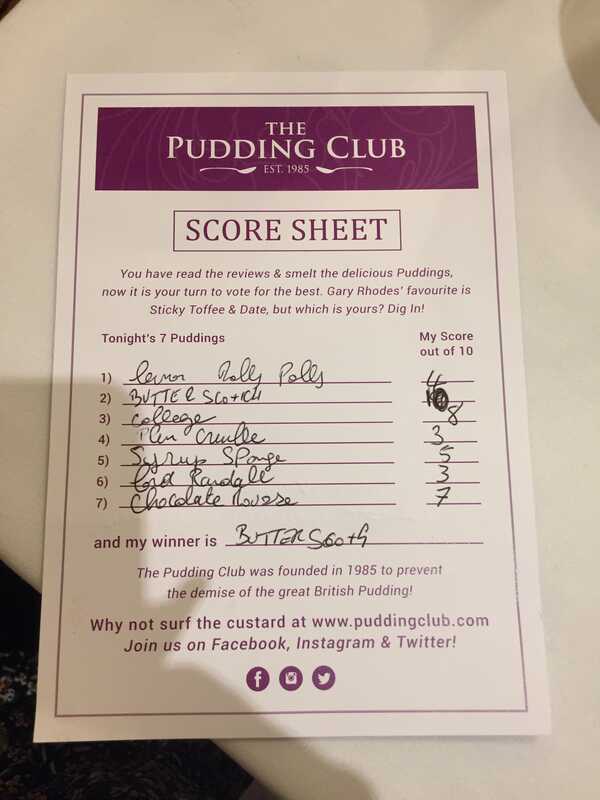 THE
PUDDING CLUB
EST. 1985
SCORE SHEET
You have read the reviews & smelt the delicious Puddings,
now it is your turn to vote for the best. Gary Rhodes' favourite is
Sticky Toffee & Date, but which is yours? Dig In!
Tonight's 7 Puddings My Score
out of 10
1) lemon Rolly Polly 4
2) BUTTERSCOTCH
3) College 8
4) Plum Crumble 3
5) Syrup SPonge 5
6) Lord Randall 3
7) Chocolate Mousse 7
and my winner is BUTTERSCOTH
The Pudding Club was founded in 1985 to prevent
the demise of the great British Pudding!
Why not surf the custard at www.puddingclub.com
Join us on Facebook, Instagram & Twitter!